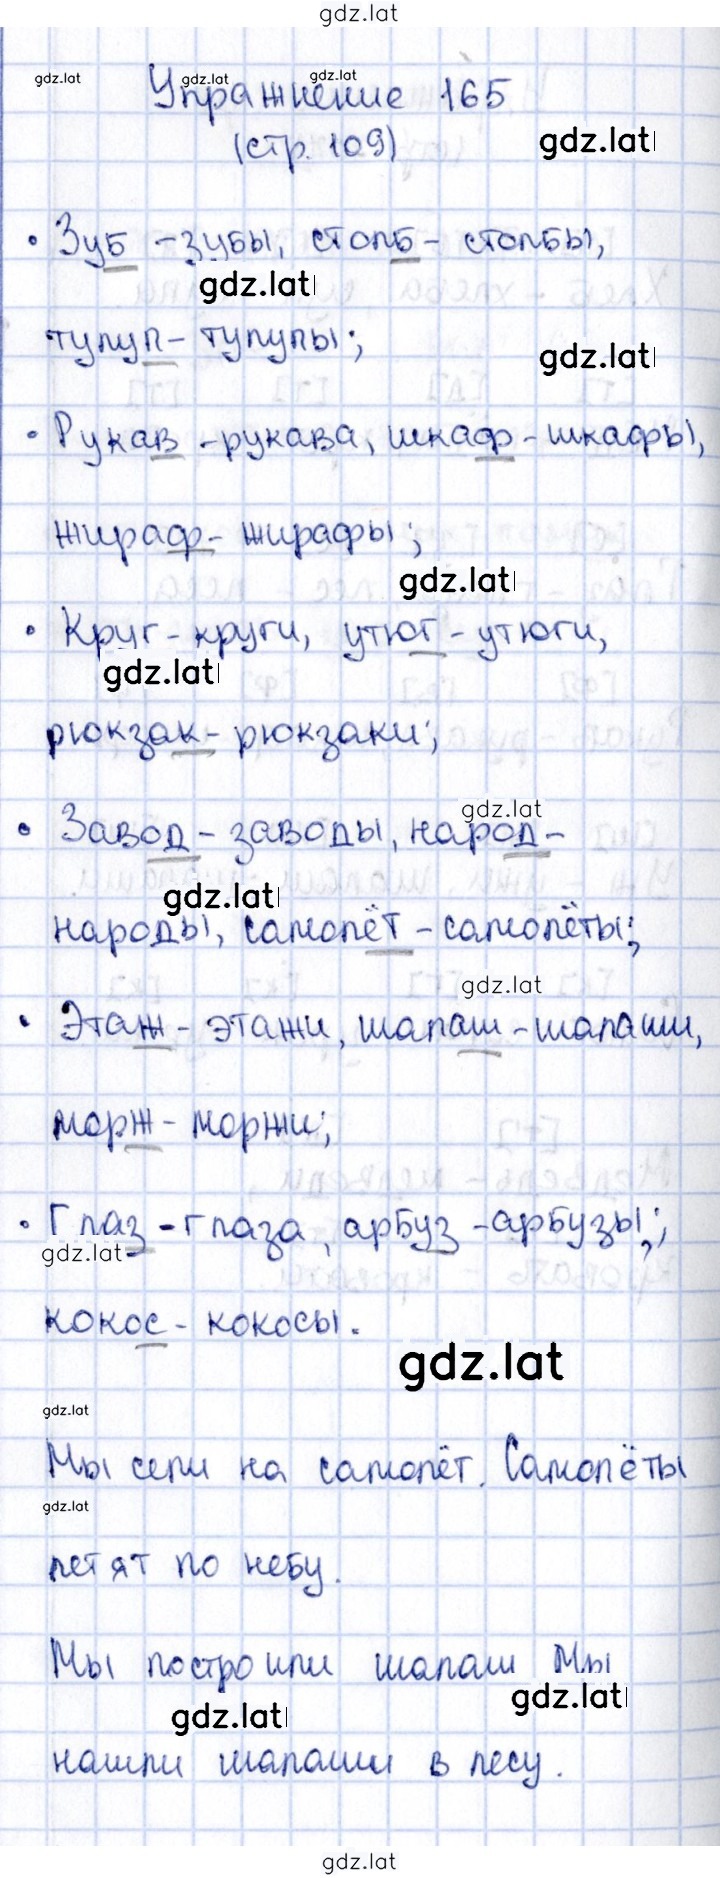 gdz.lat
gdz.lat gdz.lat gdz.lat
Упражнение 165
(стр. 109)
gdz.lat
• Зуб - зубы, столб - столбы,
gdz.lat
тулуп - тулупы;
gdz.lat
• Рукав - рукава, шкаф - шкафы,
жираф - жирафы;
gdz.lat
• Круг - круги, утюг - утюги,
gdz.lat
рюкзак - рюкзаки;
gdz.lat
• Завод - заводы, народ -
gdz.lat
народы, самолёт - самолёты;
gdz.lat
• Этаж - этажи, шалаш - шалаши,
морж - моржи;
• Глаз - глаза, арбуз - арбузы;
gdz.lat
кокос - кокосы.
gdz.lat
gdz.lat
Мы сели на самолёт. Самолёты
gdz.lat
летят по небу.
Мы построили шалаш Мы
gdz.lat
gdz.lat
нашли шалаши в лесу.
gdz.lat